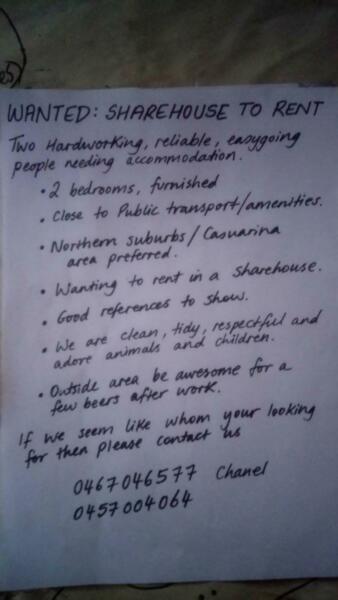 WANTED: SHAREHOUSE TO RENT
Two Hardworking, reliable, easygoing
people needing accommodation.
• 2 bedrooms, furnished
• Close to Public transport/amenities.
• Northern suburbs/Casuarina
area preferred.
• Wanting to rent in a sharehouse.
• Good references to show.
• We are clean, tidy, respectful and
adore animals and children.
• Outside area be awesome for a
few beers after work.
If we seem like whom your looking
for then please contact us
0467046577 Chanel
0457004064